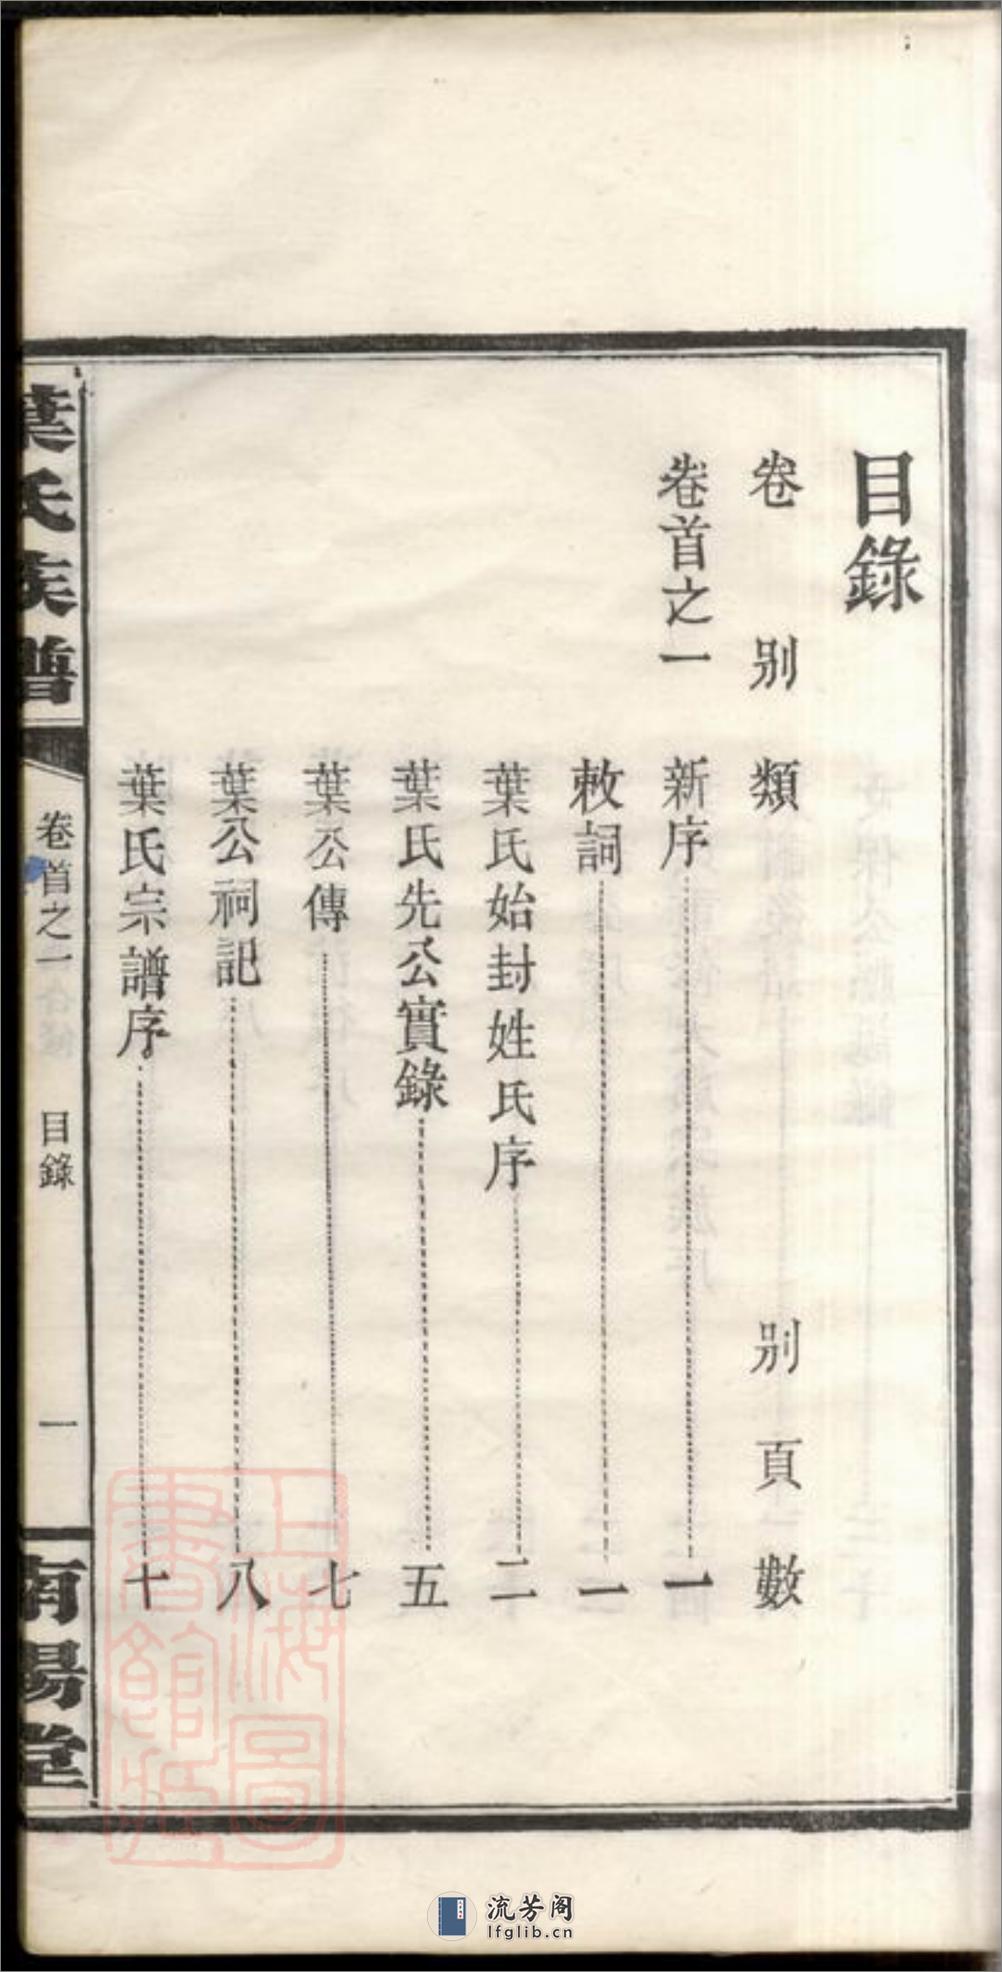 目錄
卷別類別頁數
卷首之一
新序 一
敕詞 一
葉氏始封姓氏序 二
葉氏先公實錄 五
葉公傳 七
葉公祠記 八
葉氏宗譜序 十
葉氏族譜
卷首之一
目錄
一
南陽堂
上海圖
書館藏
流芳阁
lfglib.cn